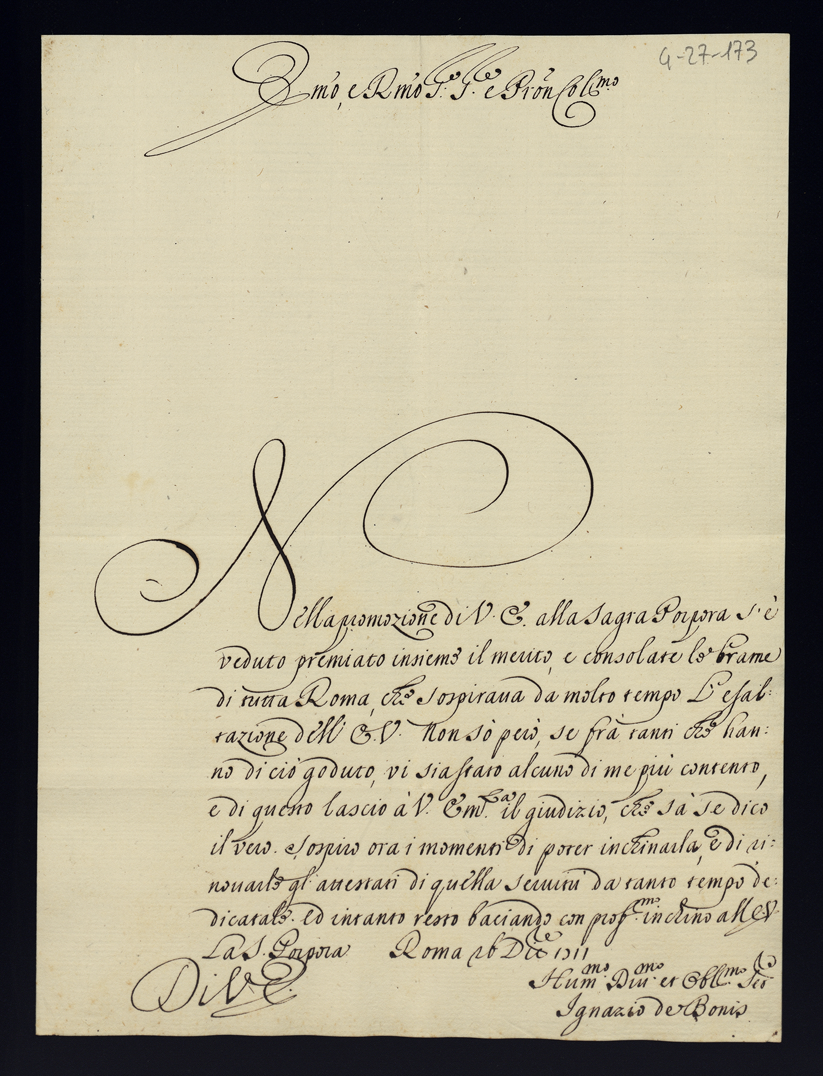 4-27-173
Em̃o, e Rm̃o Sig.re Sig.re e Prõn Col.mo
Nella promozione di V. E. alla Sagra Porpora s'è
veduto premiato insieme il merito, e consolate le brame
di tutta Roma, che sospiraua da molto tempo l'esal-
tazione dell' E.V. Non sò però, se frà tanti che han:
no di ciò goduto, vi sia stato alcuno di me più contento,
e di questo lascio à V. Em.za il giudizio, che sà se dico
il vero. Sospiro ora i momenti di poter inchinarla, e di ri:
nouarle gl' attestati di quella seruitù da tanto tempo de:
dicatale. Ed intanto resto baciando con prof.mo inchino all' E.V.
La S. Porpora Roma 26 Dic.re 1711
Di V. E.
Hum.mo Diu.mo et Obl.mo Ser.re
Ignazio de Bonis